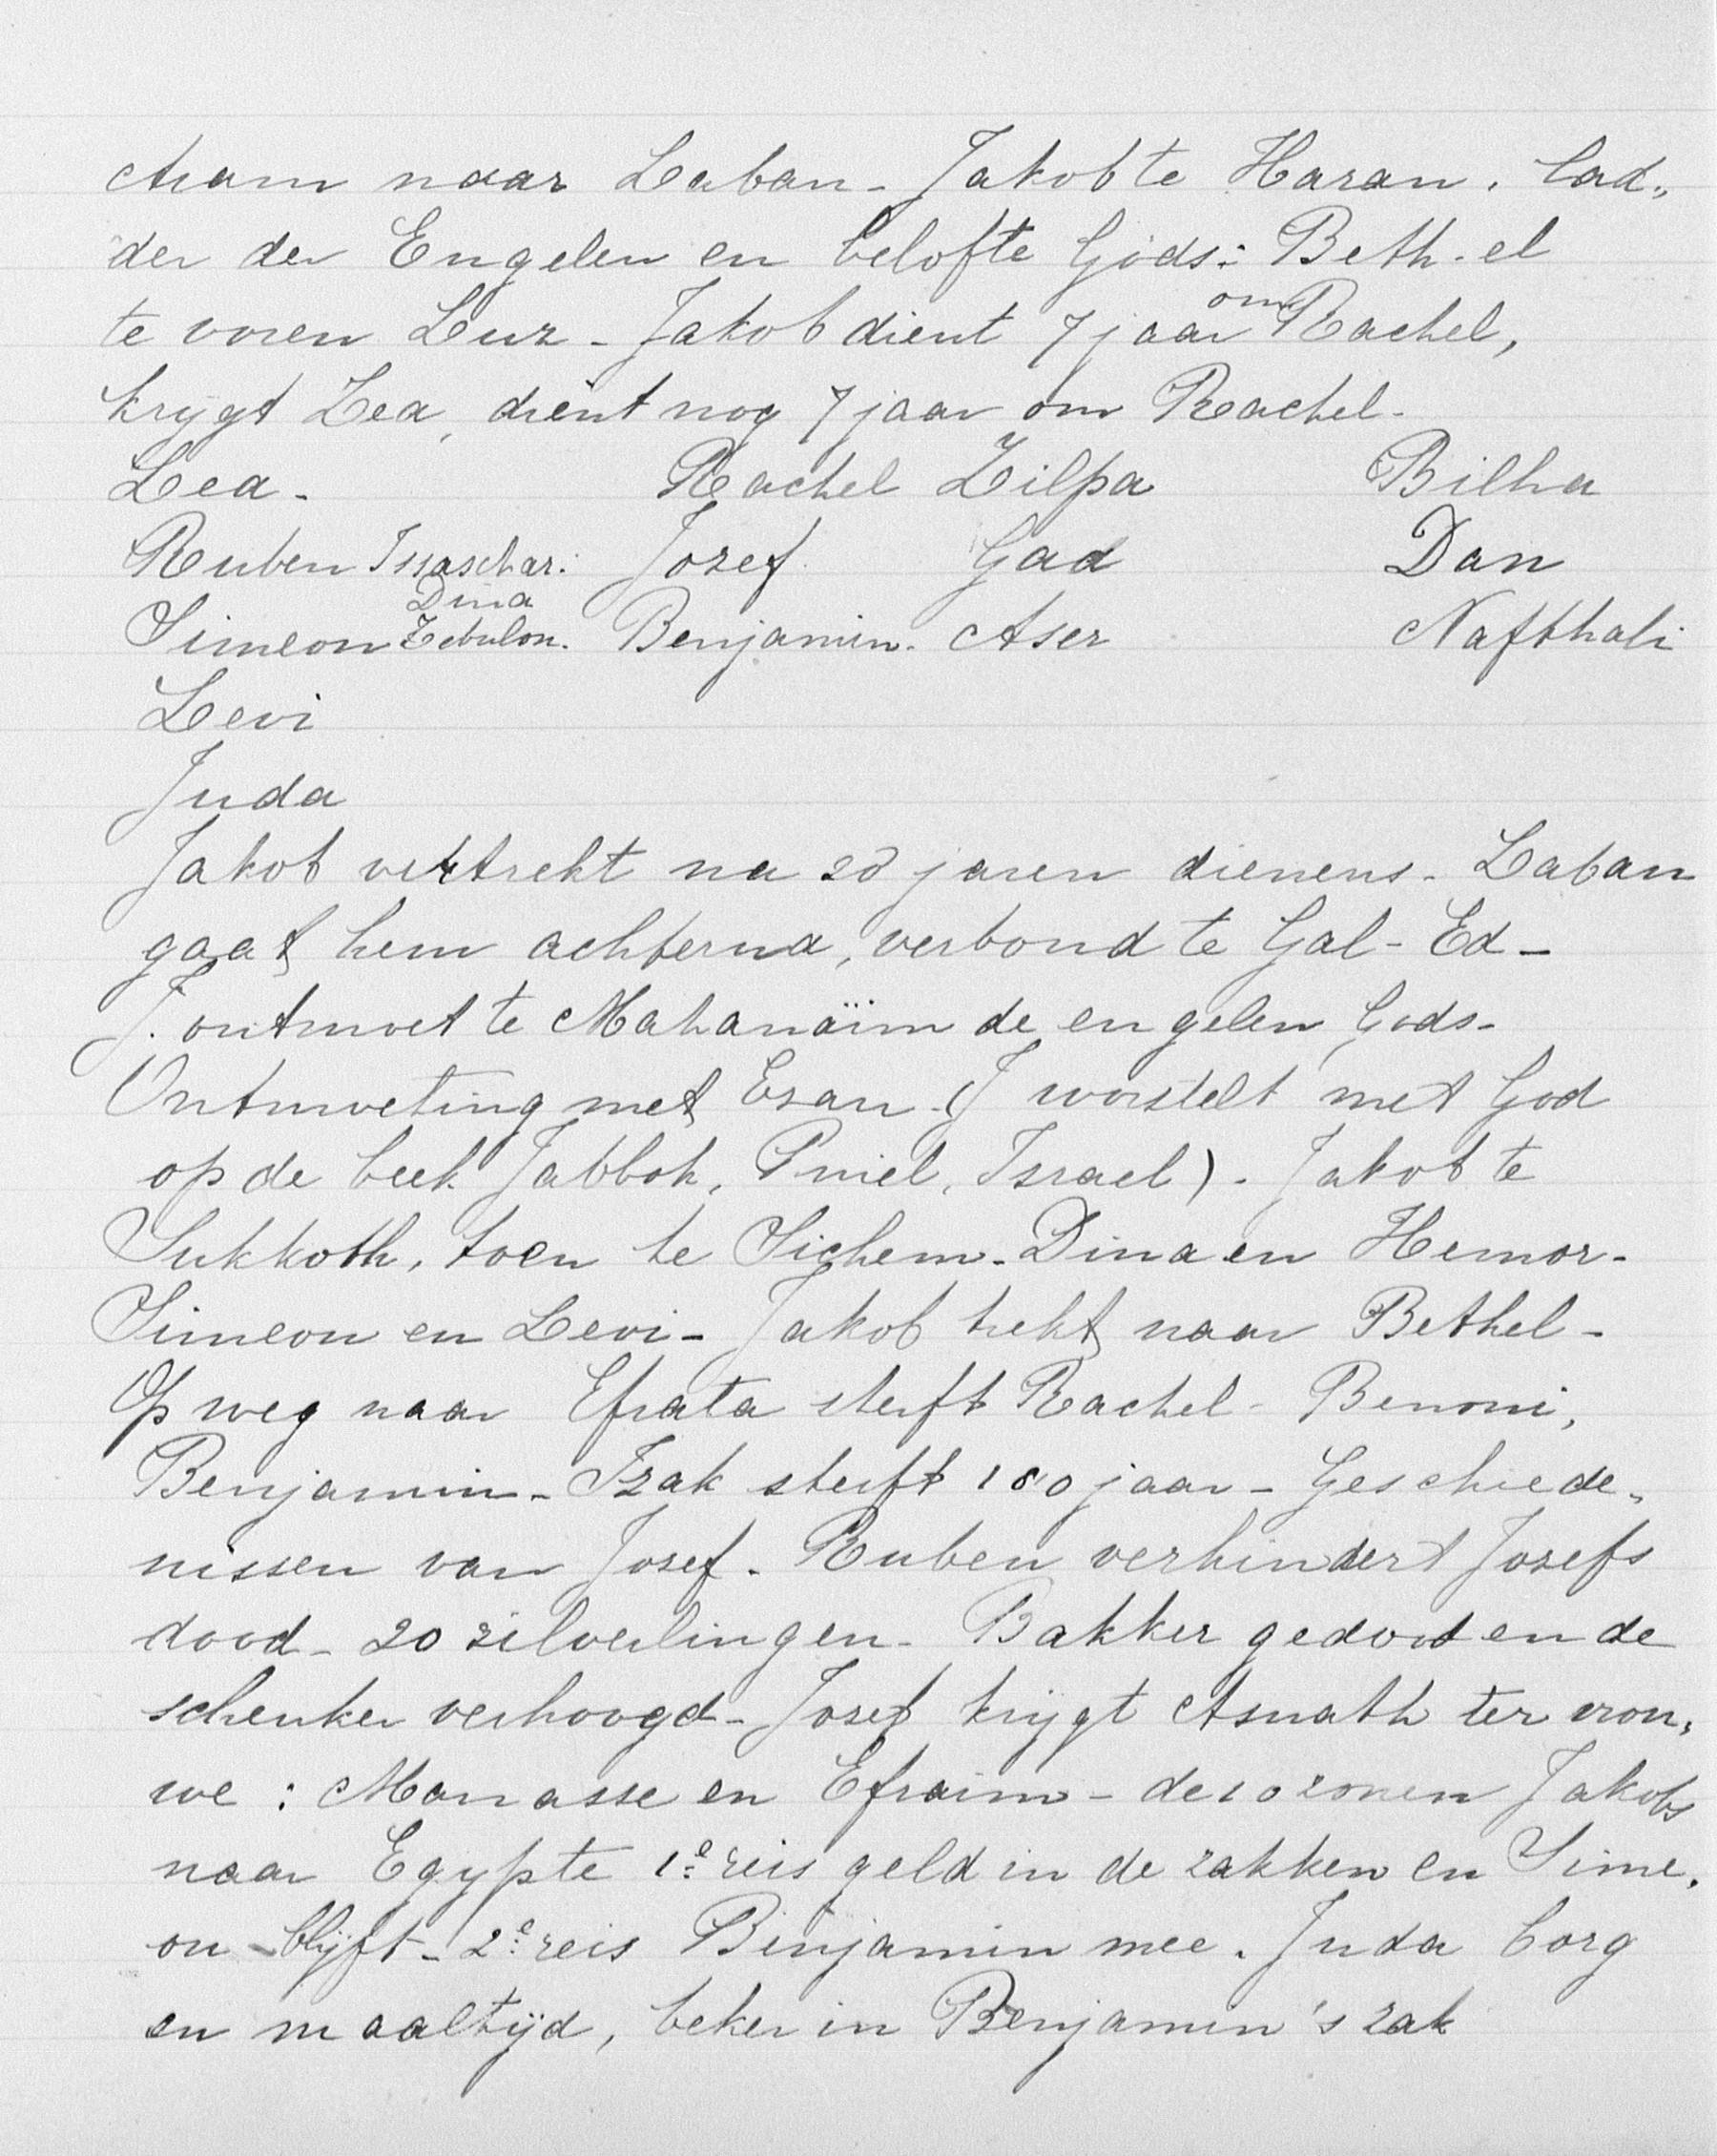 Aram naar Laban - Jakob te Haran. Lad„
der der Engelen en belofte Gods: Beth-el
te voren Luz - Jakob dient 7 jaar om Rachel,
krijgt Lea, dient nog 7 jaar om Rachel -
Lea. Rachel Zilpa Bilha
Ruben Issaschar. Jozef. Gad Dan
Dina
Simeon Zebulon. Benjamin. Aser Nafthali
Levi
Juda
Jakob vertrekt na 20 jaren dienens - Laban
gaat hem achterna, verbond te Gal-Ed -
J. ontmoet te Mahanaïm de engelen Gods -
Ontmoeting met Ezau. (J worstelt met God
op de beek Jabbok, Pniel, Israel). Jakob te
Sukkoth, toen te Sichem - Dina en Hemor -
Simeon en Levi - Jakob trekt naar Bethel -
Op weg naar Efrata sterft Rachel - Benoni,
Benjamin - Izak sterft 180 jaar - Geschiede„
nissen van Jozef. Ruben verhindert Jozefs
dood - 20 zilverlingen - Bakker gedood en de
schenker verhoogd - Jozef krijgt Asnath ter vrou„
we : Manasse en Efraim - de 10 zonen Jakobs
naar Egypte 1e reis geld in de zakken en Sime„
on blijft - 2e reis Binjamin mee. Juda borg
en maaltijd, beker in Benjamin's zak